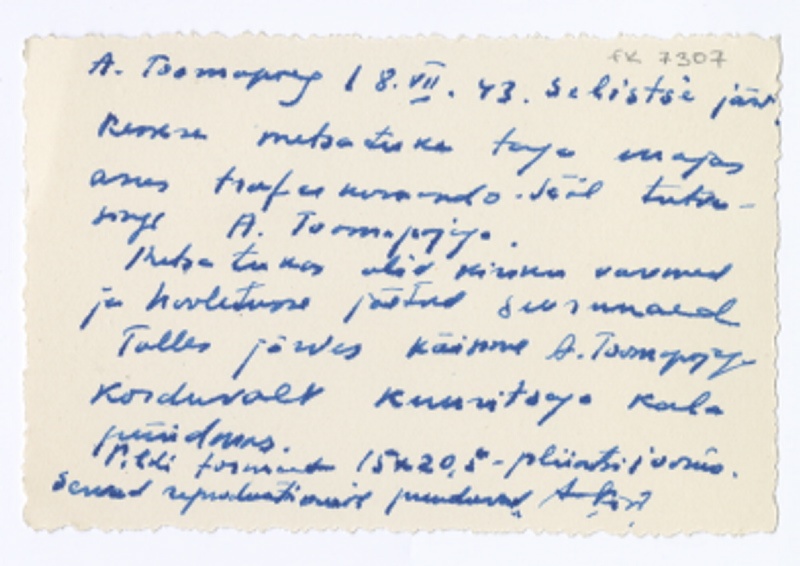 FK 7307
A. Toomapoeg 18.VII.43. Selistse järv.
metsatuka taga majas
asus trahvikomando. Sääl tutvu-
sin
A. Toomapojaga.
Metsatukas olid kiriku varemed
ja hooletusse jäetud surnuaed
Talles järves käisime A. Toomapojaga
korduvalt kuuritsaga kala
püüdmas.
Pildi formaat 15x20,5 - pliiatsijoonis.
servad reproduktsioonil puuduvad.